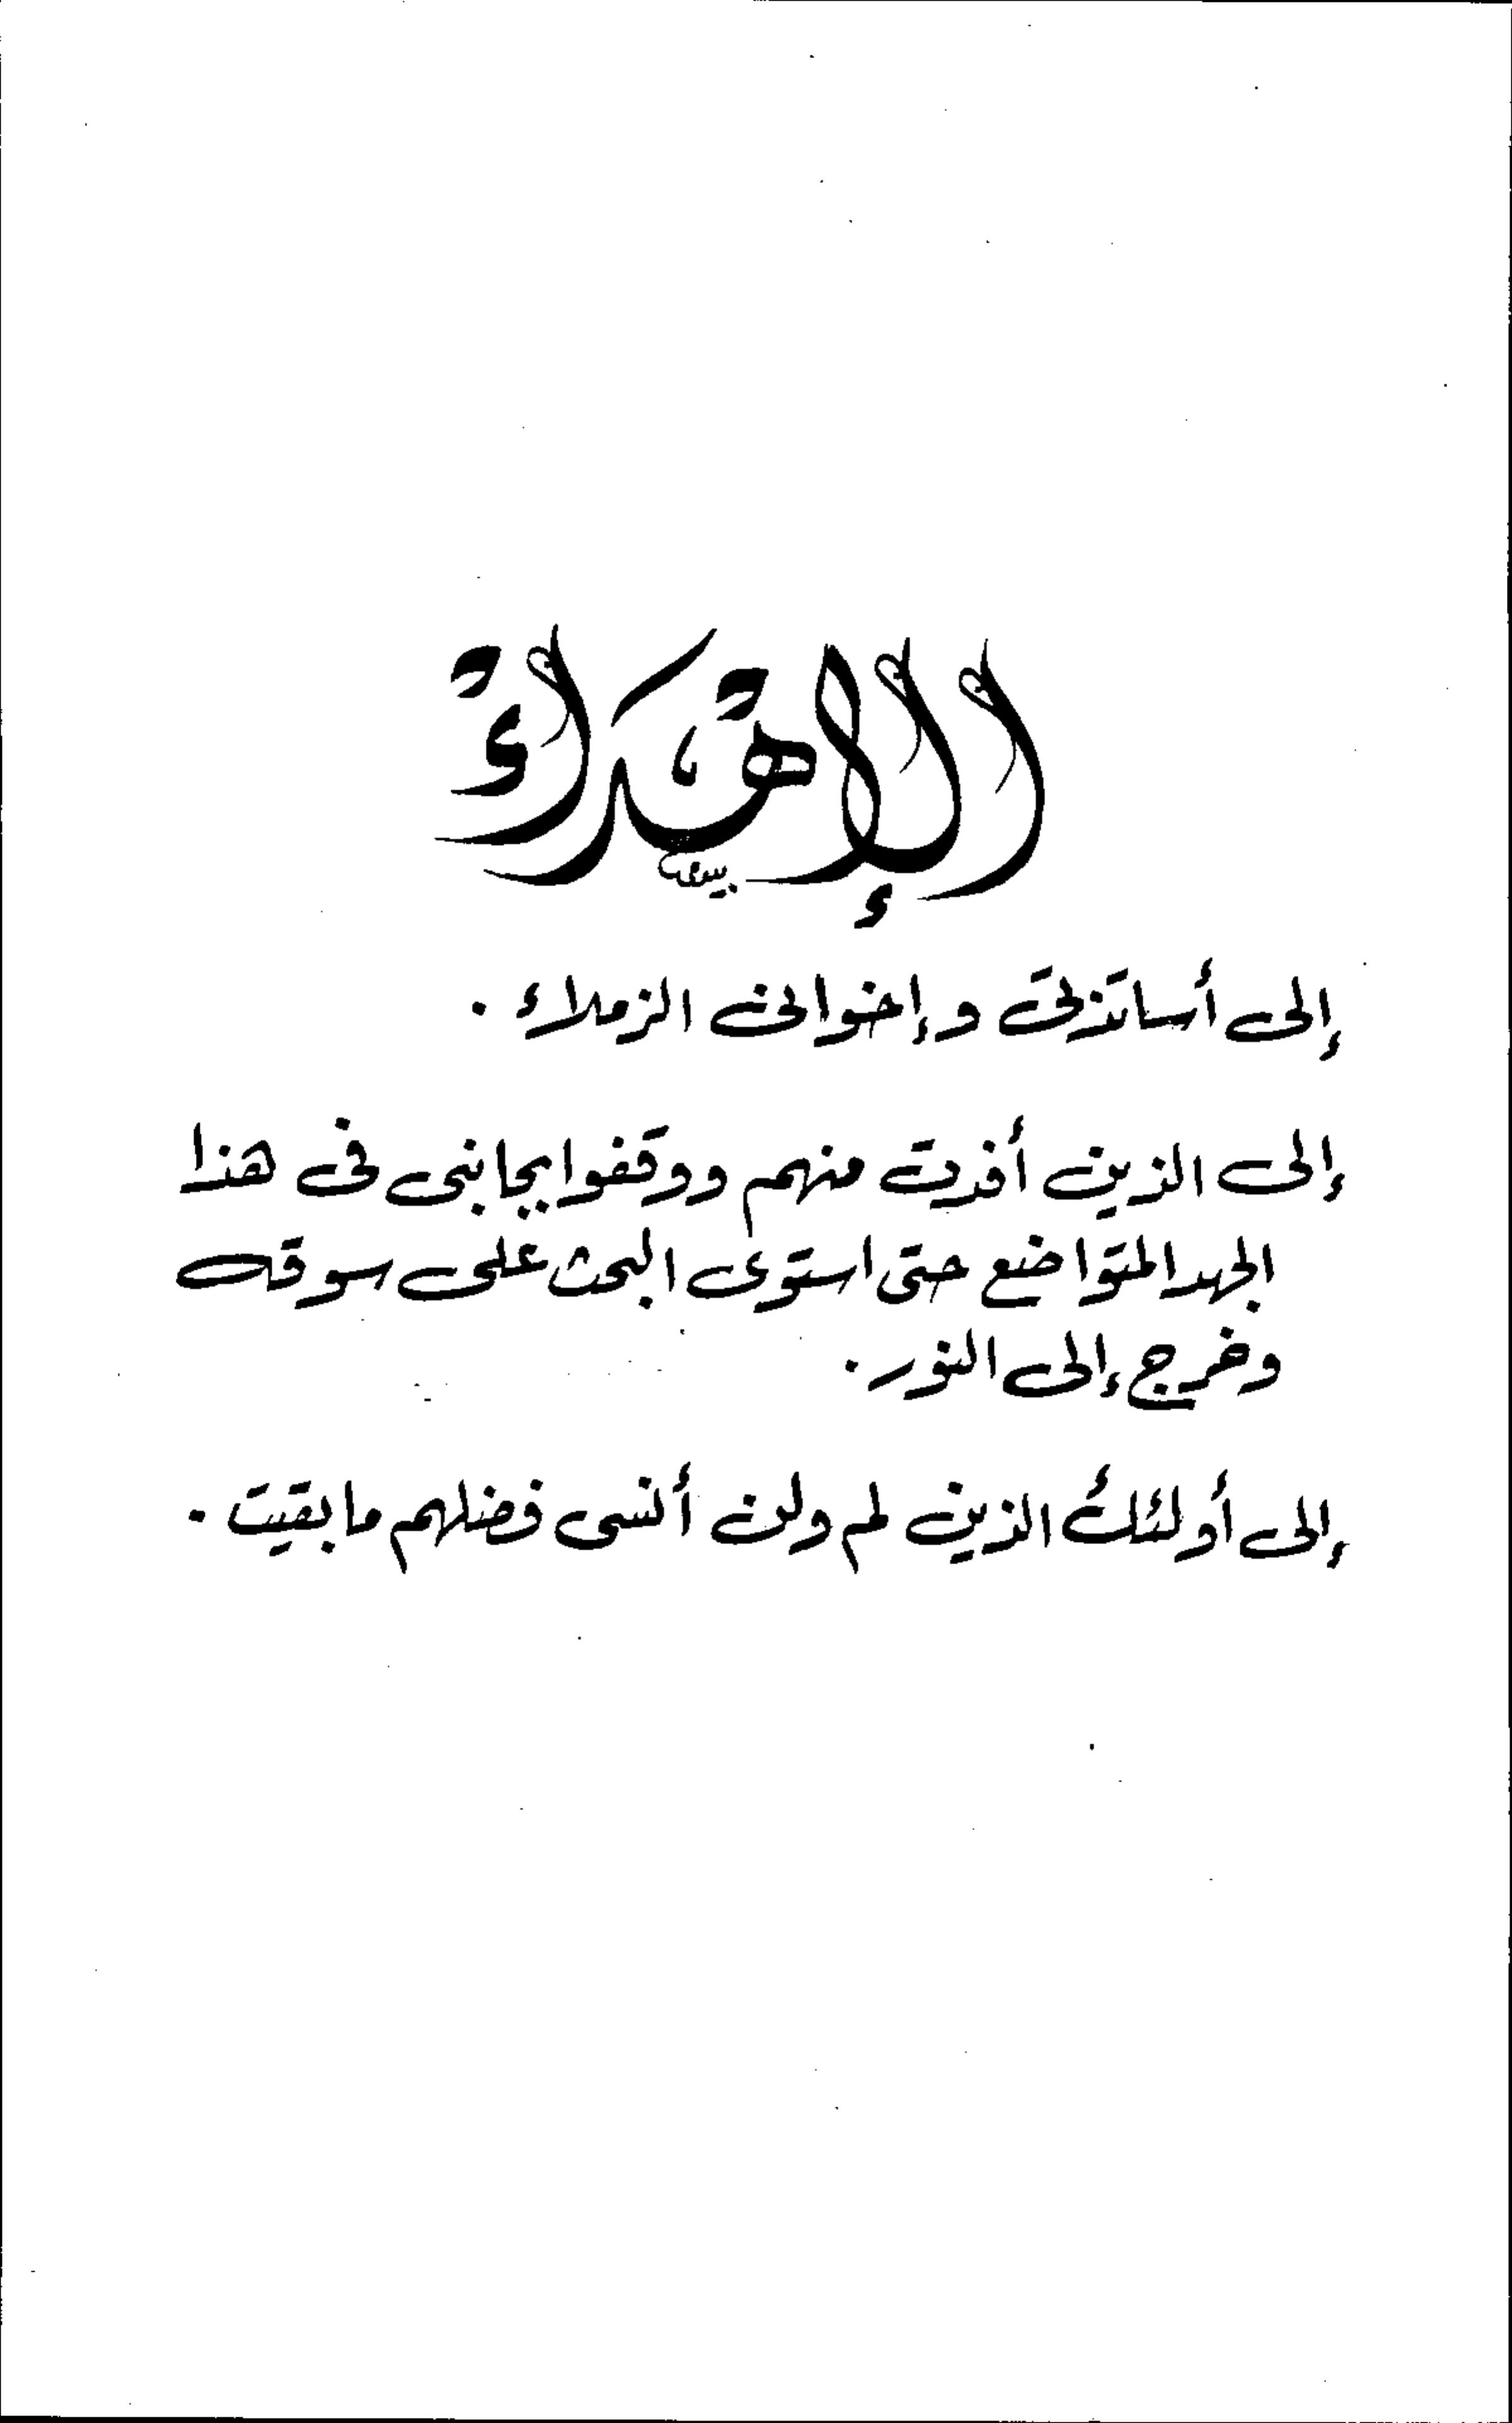 الإهداء
إلى أساتذتى وإخوانى الزملاء .
إلى الذين أفدت منهم ووقفوا بجانبى فى هذا
الجهد المتواضع حتى استوى البحث على سوقه
وخرج إلى النور .
إلى أولئك الذين لم ولن أنسى فضلهم ما بقيت .